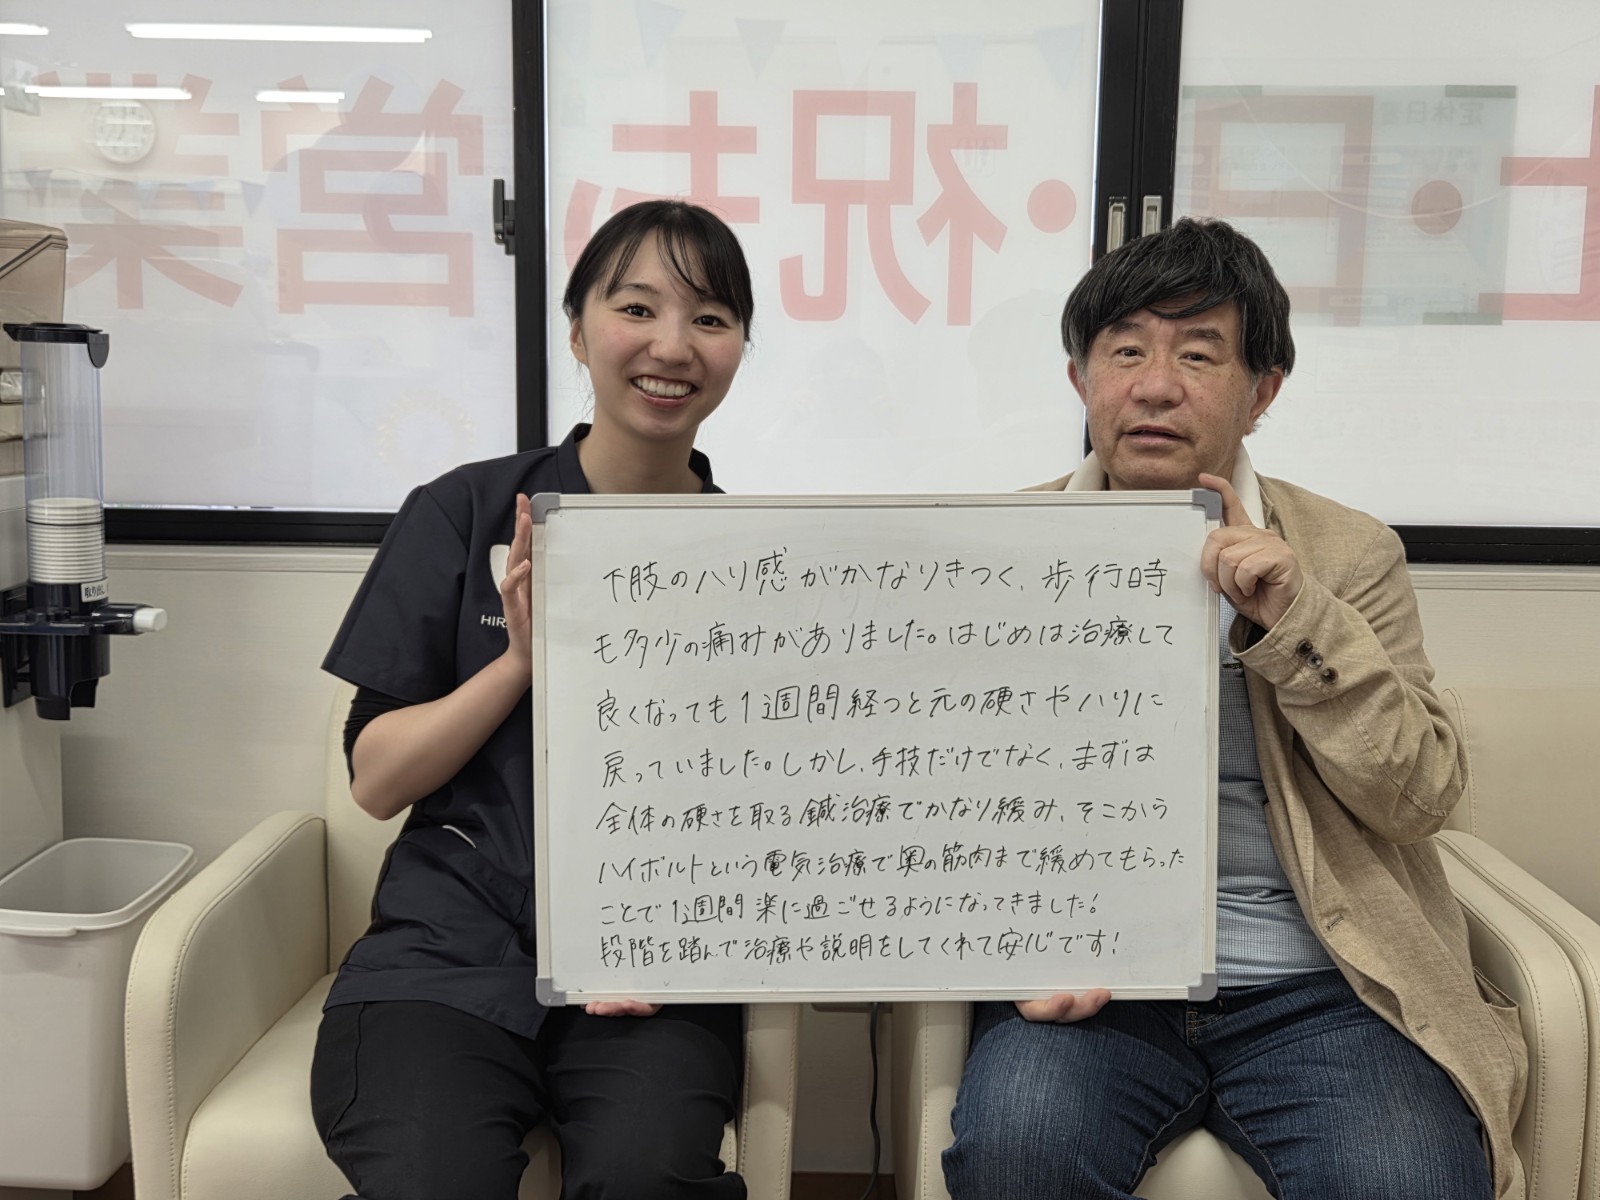 土・日・祝も営業
定休日
取り出し
HIR
下肢のハリ感がかなりきつく、歩行時
も多少の痛みがありました。はじめは治療して
良くなっても1週間経つと元の硬さやハリに
戻っていました。しかし、手技だけでなく、まずは
全体の硬さを取る鍼治療でかなり緩み、そこから
ハイボルトという電気治療で奥の筋肉まで緩めてもらった
ことで1週間楽に過ごせるようになってきました!
段階を踏んで治療や説明をしてくれて安心です!